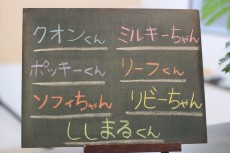 クオンくん ミルキーちゃん
ポッキーくん リーフくん
ソフィちゃん リビーちゃん
ししまるくん